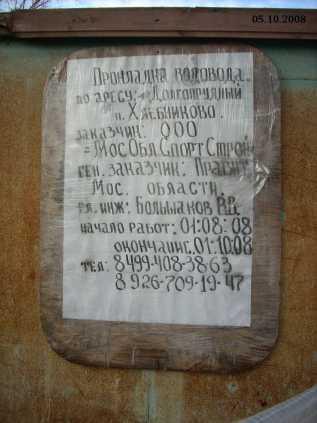 05.10.2008
Прокладка водовода
по аресу: Долгопрудный
п. Хлебниково.
заказчик: ООО
=МосОблСпортСтрой
ген. заказчик: Правит
Мос. области
гл. инж: Большаков В.Д.
начало работ: 01:08:08
окончаниг: 01:10:08
тел: 8499-408-38-63
8926-709-19-47